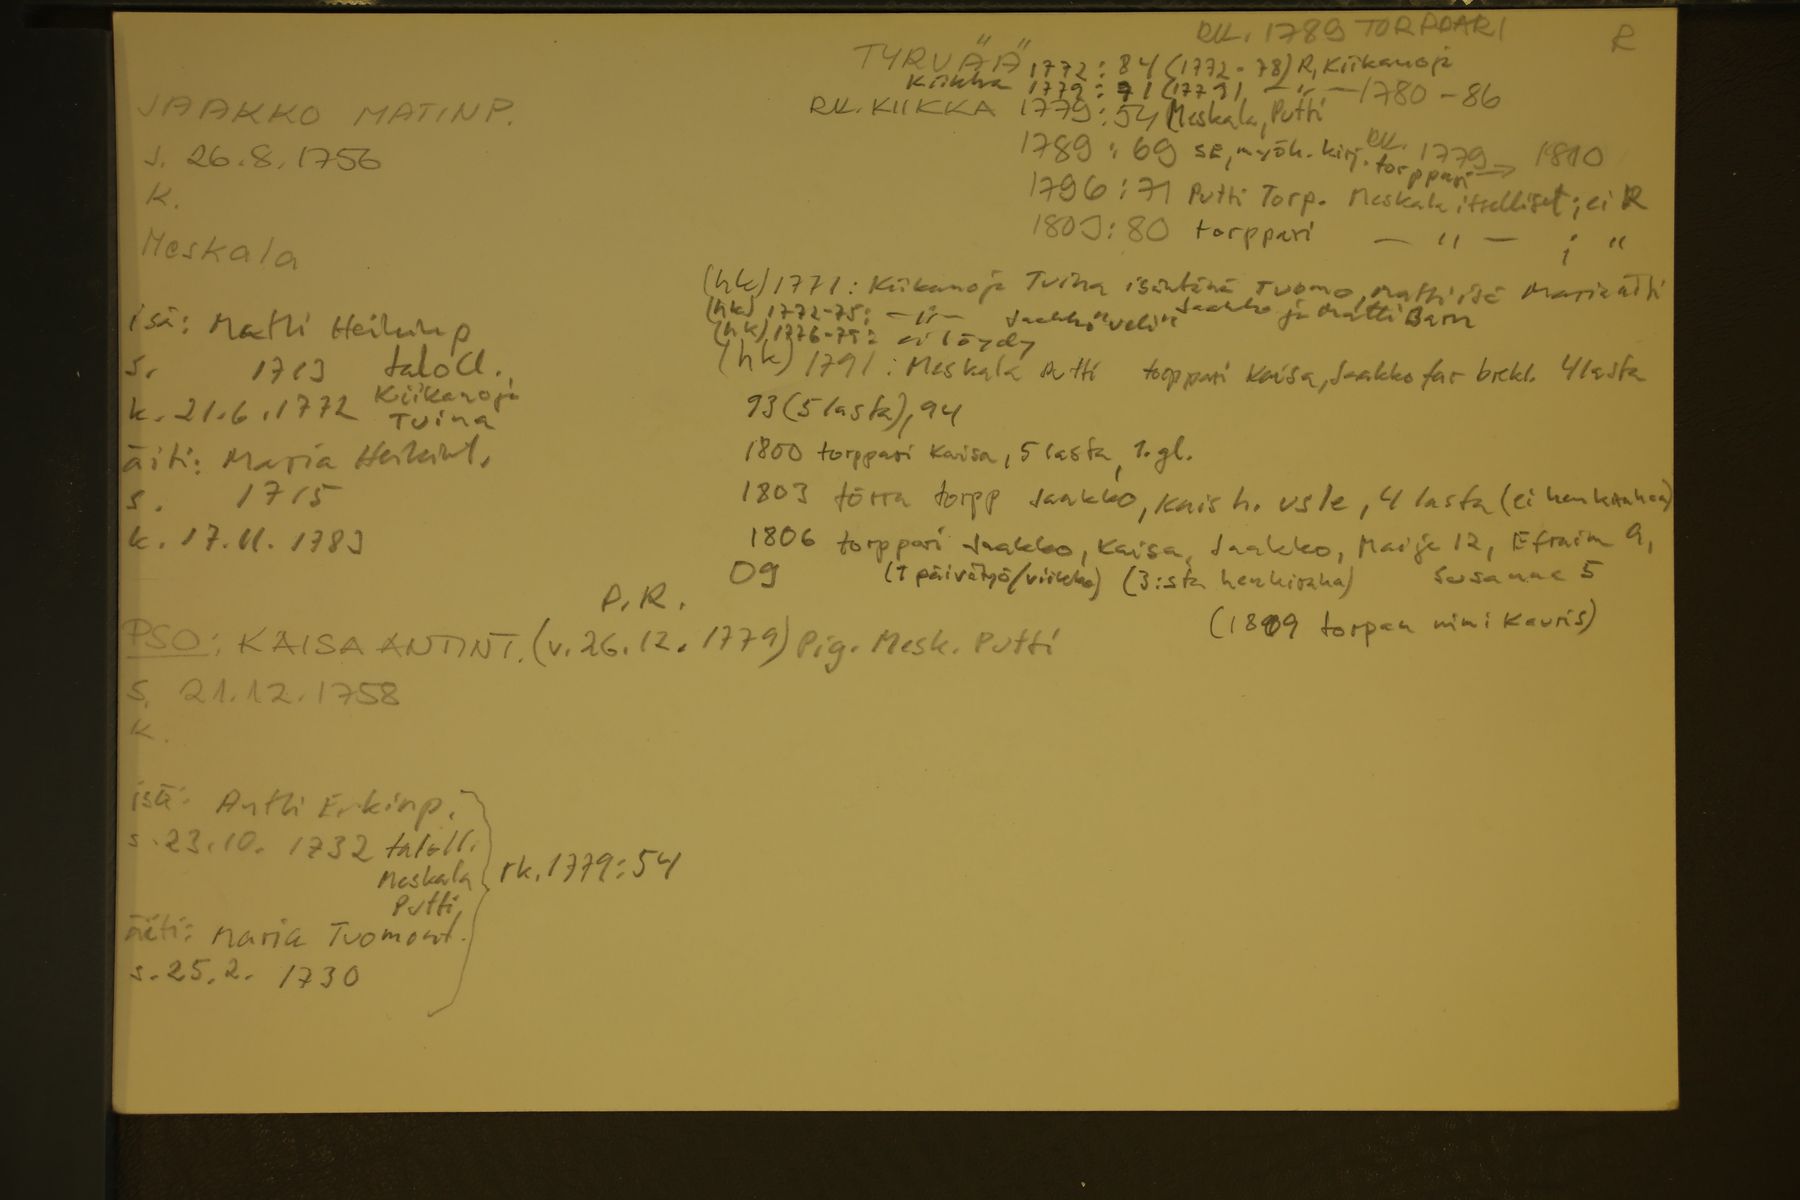 RK. 1789 TORPPARI
R
TYRVÄÄ 1772: 84 (1772-78) R, Kiikanoja
Kiikka 1779: 71 (1779) — " — 1780-86
RK. KIIKKA 1779: 54 Meskala, Putti
1789: 69 SE, myöh. kirj. torppari RK. 1779 → 1810
1796: 71 Putti Torp. Meskala itselliset; ei R
1803: 80 torppari — " — ; "
JAAKKO MATINP.
s. 26.8.1756
K.
Meskala
isä: Matti Heikinp
s. 1713 taloll.
Kiikanoja
k. 21.6.1772 Tuina
äiti: Maria Heikint.
s. 1715
k. 17.11.1783
(hk) 1771: Kiikanoja Tuina isäntänä Tuomo, Matti isä Maria äiti
Jaakko ja Matti Barn
(hk) 1772-75: — " — Jaakko "veli"
(hk) 1776-79: ei löydy
(hk) 1791: Meskala Putti torppari Kaisa, Jaakko far brekl. 4 lasta
93 (5 lasta), 94
1800 torppari Kaisa, 5 lasta, 1. gl.
1803 förra torpp Jaakko, Kais h. usle, 4 lasta (ei henkirahaa)
1806 torppari Jaakko, Kaisa, Jaakko, Maija 12, Efraim 9,
09 (1 päivätyö/viikko) (3:sta henkiraha) Susanna 5
(1809 torpan nimi Kauris)
P.R.
PSO: KAISA ANTINT. (v. 26.12.1779) Pig. Mesk. Putti
s. 21.12.1758
K.
isä: Antti Erkinp.
s. 23.10. 1732 taloll.
Meskala
Putti
rk. 1779: 54
äiti: Maria Tuomont.
s. 25.2. 1730